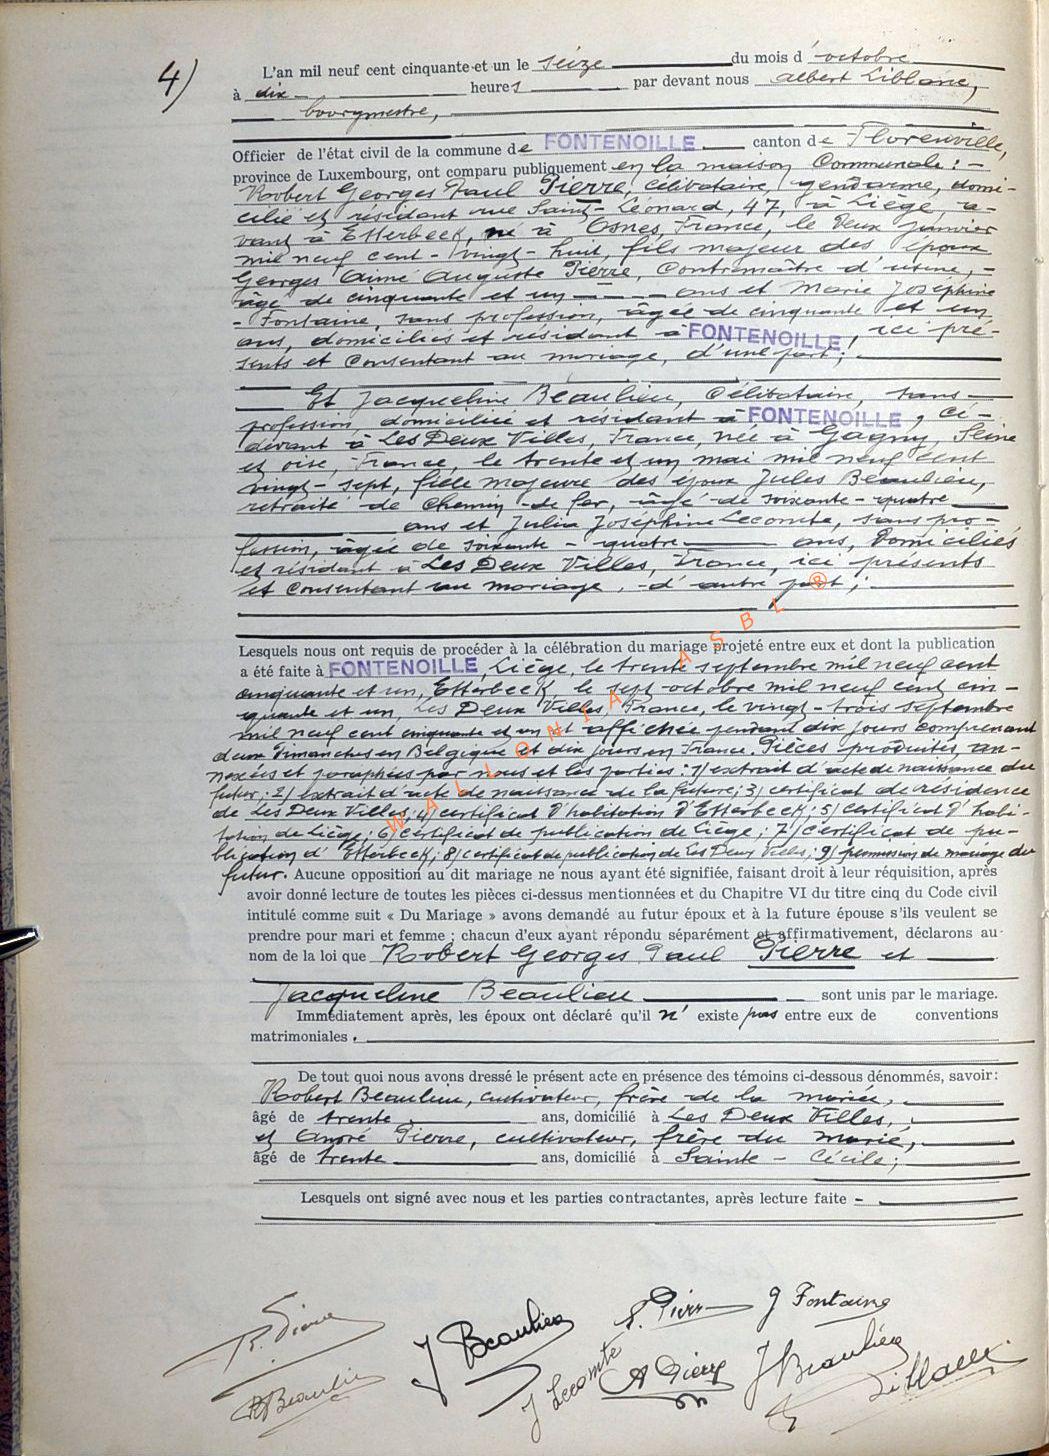 4)
L'an mil neuf cent cinquante et un le seize du mois d'octobre
à dix heures par devant nous Albert Liblanc,
bourgmestre,
Officier de l'état civil de la commune de FONTENOILLE canton de Florenville,
province de Luxembourg, ont comparu publiquement en la maison Communale : -
Robert Georges Paul Pierre, célibataire, gendarme, domi-
cilié et résidant rue Saint-Léonard, 47, à Liège, a-
vant à Etterbeek, né à Osnes, France, le deux janvier
mil neuf cent-vingt-huit, fils majeur des époux
Georges Aimé Auguste Pierre, Contremaître d'usine, -
âgé de cinquante et un ans et Marie Joséphine
- Fontaine, sans profession, âgée de cinquante et un
ans, domiciliés et résidant à FONTENOILLE, ici pré-
sents et consentant au mariage, d'une part ;
Et Jacqueline Beaulieu, Célibataire, sans
profession, domiciliée et résidant à FONTENOILLE, ci-
devant à Les Deux Villes, France, née à Gagny, Seine
et oise, France, le trente et un mai mil neuf cent
vingt-sept, fille majeure des époux Jules Beaulieu,
retraité de chemin-de-fer, âgé de soixante-quatre
ans et Julia Joséphine Lecomte, sans pro-
fession, âgée de soixante-quatre ans, Domiciliés
et résidant à Les Deux Villes, France, ici présents
et consentant au mariage, d'autre part ;
Lesquels nous ont requis de procéder à la célébration du mariage projeté entre eux et dont la publication
a été faite à FONTENOILLE, Liège, le trente septembre mil neuf cent
cinquante et un, Etterbeek, le sept octobre mil neuf cent cin-
quante et un, Les Deux Villes, France, le vingt-trois septembre
mil neuf cent cinquante et un et affichée pendant dix jours comprenant
deux Dimanches en Belgique et dix jours en France. Pièces produites, an-
nexées et paraphées par nous et les parties : 1) extrait d'acte de naissance du
futur ; 2) extrait d'acte de naissance de la future ; 3) certificat de résidence
de Les Deux Villes ; 4) certificat d'habitation d'Etterbeek ; 5) certificat d'habi-
tation de Liège ; 6) certificat de publication de Liège ; 7) certificat de pu-
blication d'Etterbeek ; 8) certificat de publication de Les Deux Villes ; 9) permission de mariage du
futur. Aucune opposition au dit mariage ne nous ayant été signifiée, faisant droit à leur réquisition, après
avoir donné lecture de toutes les pièces ci-dessus mentionnées et du Chapitre VI du titre cinq du Code civil
intitulé comme suit « Du Mariage » avons demandé au futur époux et à la future épouse s'ils veulent se
prendre pour mari et femme ; chacun d'eux ayant répondu séparément et affirmativement, déclarons au
nom de la loi que Robert Georges Paul Pierre et
Jacqueline Beaulieu sont unis par le mariage.
Immédiatement après, les époux ont déclaré qu'il n'existe pas entre eux de conventions
matrimoniales.
De tout quoi nous avons dressé le présent acte en présence des témoins ci-dessous dénommés, savoir :
Robert Beaulieu, cultivateur, frère de la mariée,
âgé de trente ans, domicilié à Les Deux Villes,
et André Pierre, cultivateur, frère du marié,
âgé de trente ans, domicilié à Sainte-Cécile ;
Lesquels ont signé avec nous et les parties contractantes, après lecture faite -
R. Pierre J Beaulieu Pierre J Fontaine
R Beaulieu J Lecomte A Pierre J Beaulieu
WALLONIA ASBL ®